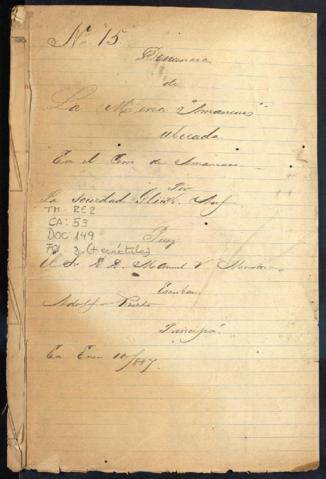 Nº 15
Denuncia
de
La Mina "Amancaes"
ubicada
En el Cerro de Amancaes
Por
La Sociedad
TH-RE2
CA: 53
DOC 149
Fol 3 (+ carátula)
Juez
El Sr. D. D. Manuel V.
Escribano
Adolfo Prieto
Principia
En Enero 10/887.